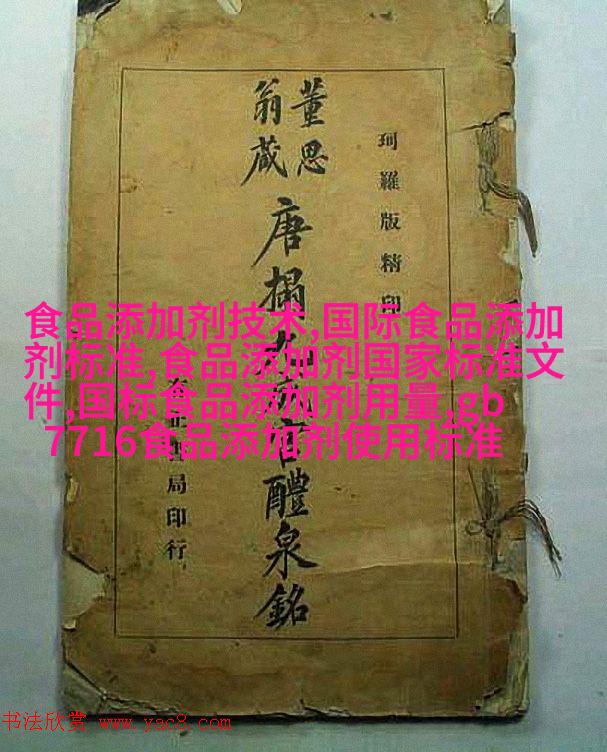 珂羅版精印
董思
翁藏
唐搨
醴泉銘
局印行
食品添加剂技术,国际食品添加
剂标准,食品添加剂国家标准文
件,国标食品添加剂用量,gb
7716食品添加剂使用标准
书法欣赏 www.yac8.com